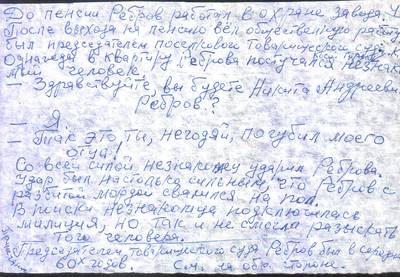 До пенсии Ребров работал в охране завода.
После выхода на пенсию вёл общественную работу
был председателем поселкового Товарищеского суда.
Однажды в квартиру Реброва постучался незнако
мый человек.
– Здравствуйте, вы будете Никита Андреевич
Ребров?
– Я
– Так это ты, негодяй, погубил моего
отца!
Со всей силой незнакомец ударил Реброва.
Удар был настолько сильным, что Ребров с
разбитой мордой свалился на пол.
В поиски незнакомца подключилась
милиция, но так и не смогла разыскать
того человека.
Председателем Товарищеского суда Ребров был в середине
60х годов. См. на обороте.